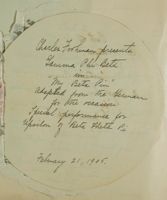 Charles Frohman presents
Gamma Phi Beta
in
"My Beta Pin"
adapted from the German
for the occasion
Special performance for
Epsilon of Beta Theta Pi
February 21, 1905.